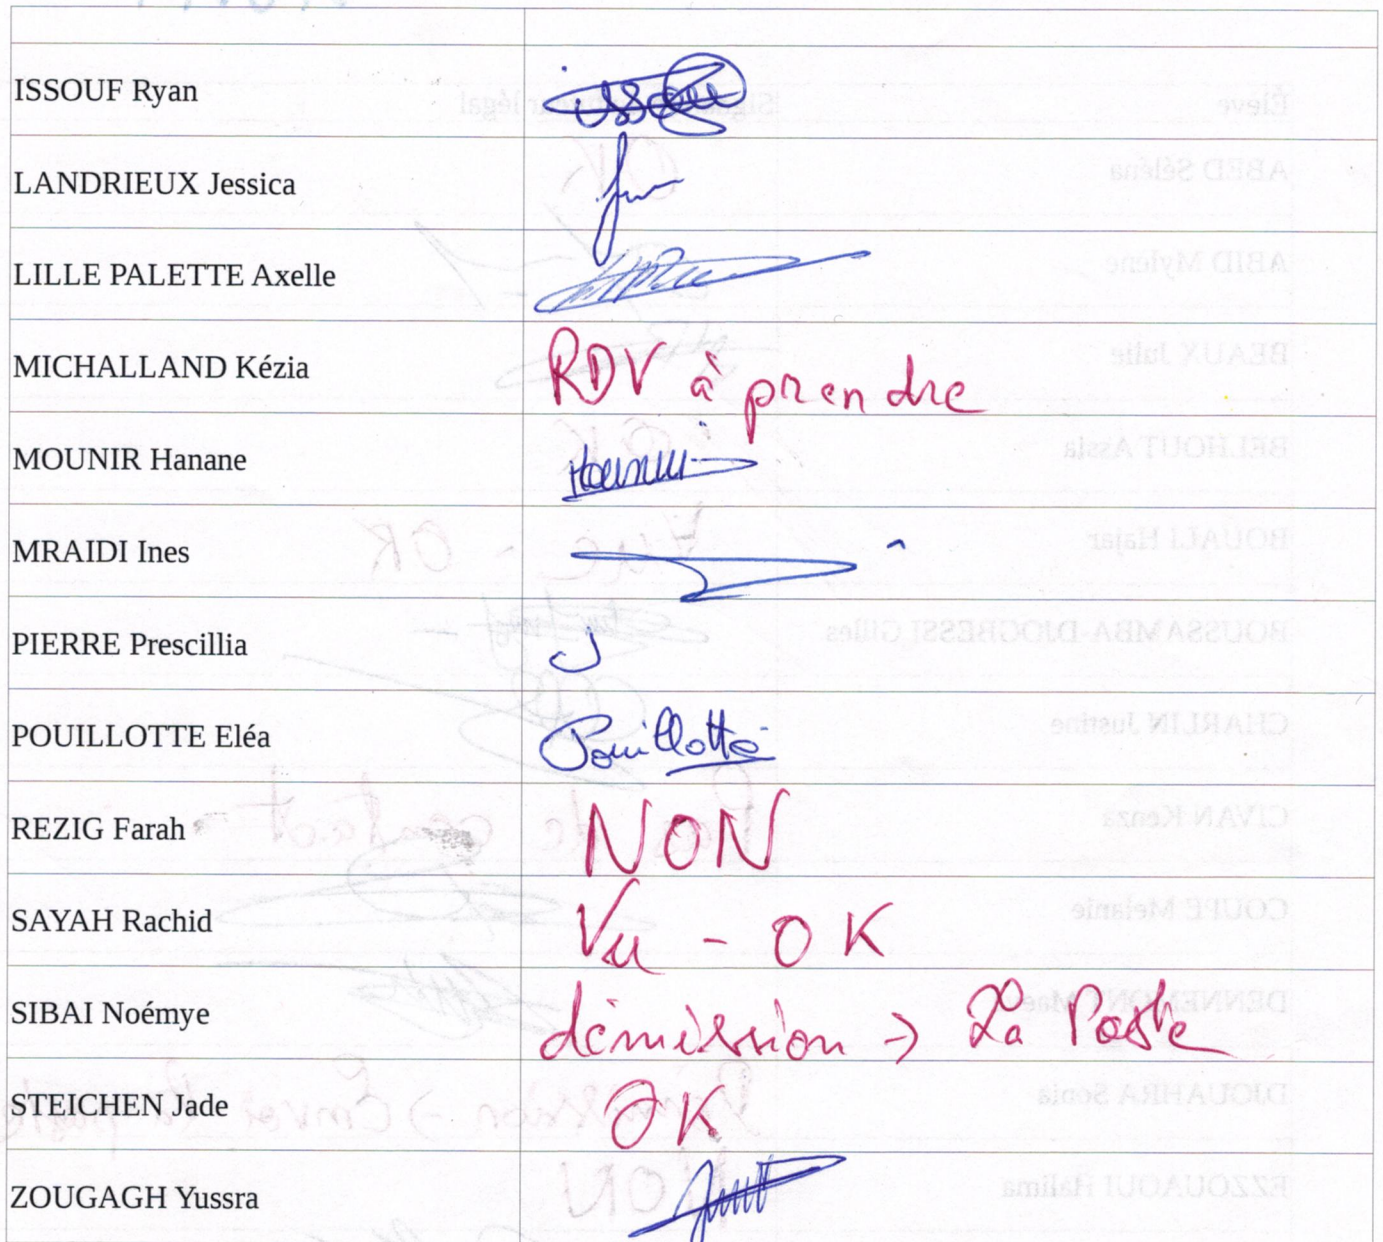 ISSOUF Ryan
LANDRIEUX Jessica
LILLE PALETTE Axelle
MICHALLAND Kézia RDV à prendre
MOUNIR Hanane
MRAIDI Ines
PIERRE Prescillia
POUILLOTTE Eléa Pouillotte
REZIG Farah NON
SAYAH Rachid Vu - OK
SIBAI Noémye démission → La Poste
STEICHEN Jade OK
ZOUGAGH Yussra